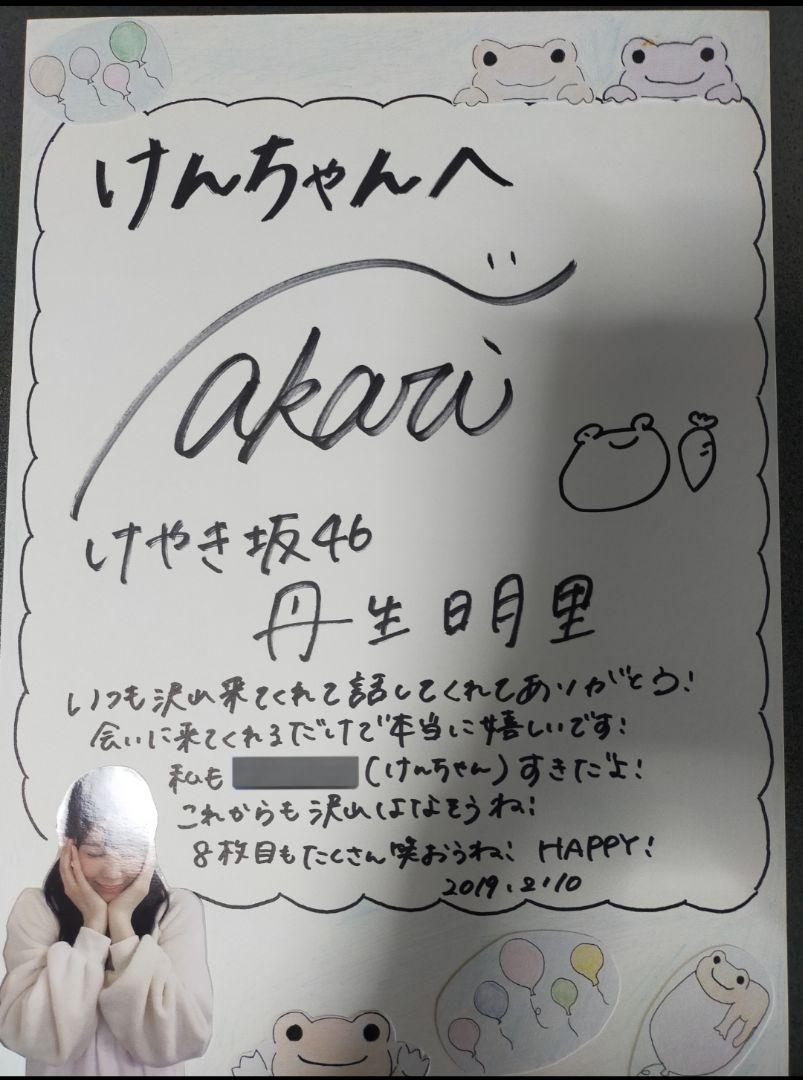 けんちゃんへ
akari
けやき坂46
丹生明里
いつも沢山来てくれて話してくれてありがとう!
会いに来てくれるだけで本当に嬉しいです!
私も (けんちゃん) すきだよ!
これからも沢山はなそうね!
8枚目もたくさん笑おうね! HAPPY!
2019.2.10